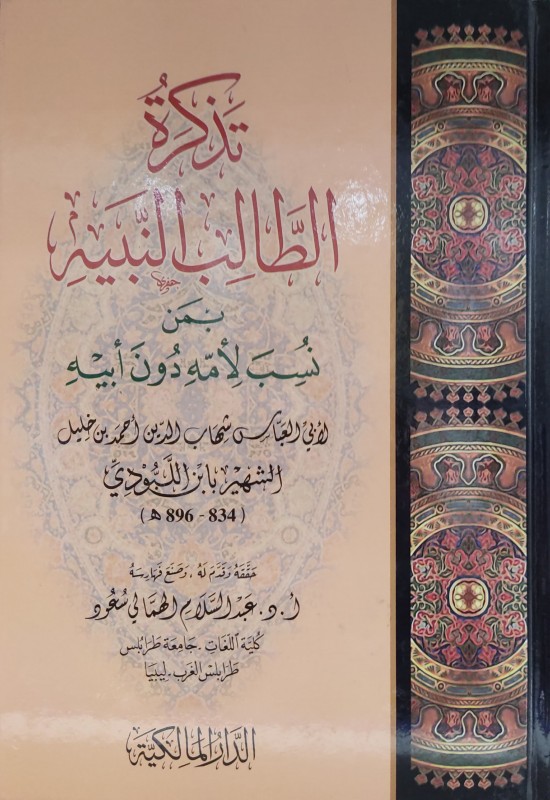 تذكرة
الطَّالِب النَّبيهِ
بمَن
نُسِبَ لِأمّهِ دُونَ أبيْهِ
لأبي العبّاس شهاب الدّين أحمد بن خليل
الشهير بابن اللَّبُّودي
(834 - 896 هـ)
حَقّقَهُ وَقَدّمَ لَهُ، وَصَنَعَ فَهَارِسَهُ
أ. د. عَبْد السَّلَام الهمالي سُعُود
كُليّة اللّغَات - جَامِعَة طَرابُلس
طرابلس الغرب - ليبيَا
الدَّار المَالكيَّة